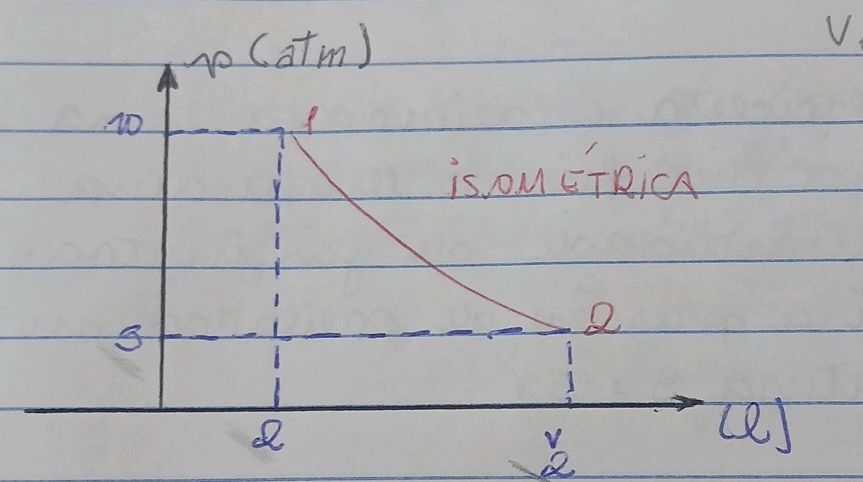 p (atm)
10
1
ISOMÉTRICA
2
2
V
2
(l)